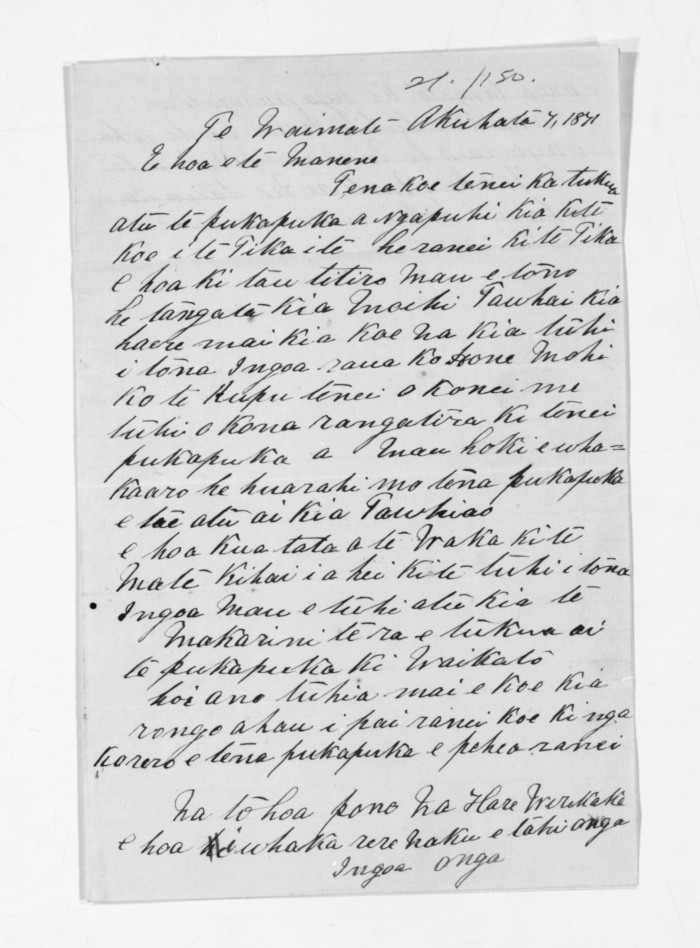 21./150.
Te Waimate Akuhata 7, 1871
E hoa e te Manene
Tena koe tenei ka tukua
atu te pukapuka a Ngapuhi kia kite
koe i te Tika i te he ranei ki te Tika
e hoa ki tau titiro Mau e tono
he tangata kia Mohi Tawhai kia
haere mai kia koe na kia tuhi
i tona Ingoa raua ko Hone Mohi
ko te Kupu tenei o konei me
tuhi o kona rangatira ki tenei
pukapuka a Mau hoki e wha=
kaaro he huarahi mo tena pukapuka
e tae atu ai kia Tawhiao
e hoa kua tata a te Waka ki te
Mate kihai i a hei ki te tuhi i tona
Ingoa Mau e tuhi atu kia te
Makarini te ra e tukua ai
te pukapuka ki Waikato
hoi ano tuhia mai e koe kia
rongo ahau i pai ranei koe ki nga
korero e tena pukapuka e pehea ranei
Na to hoa pono Na Hare Wirikake
e hoa i whaka rere Naku e tahi onga
Ingoa onga